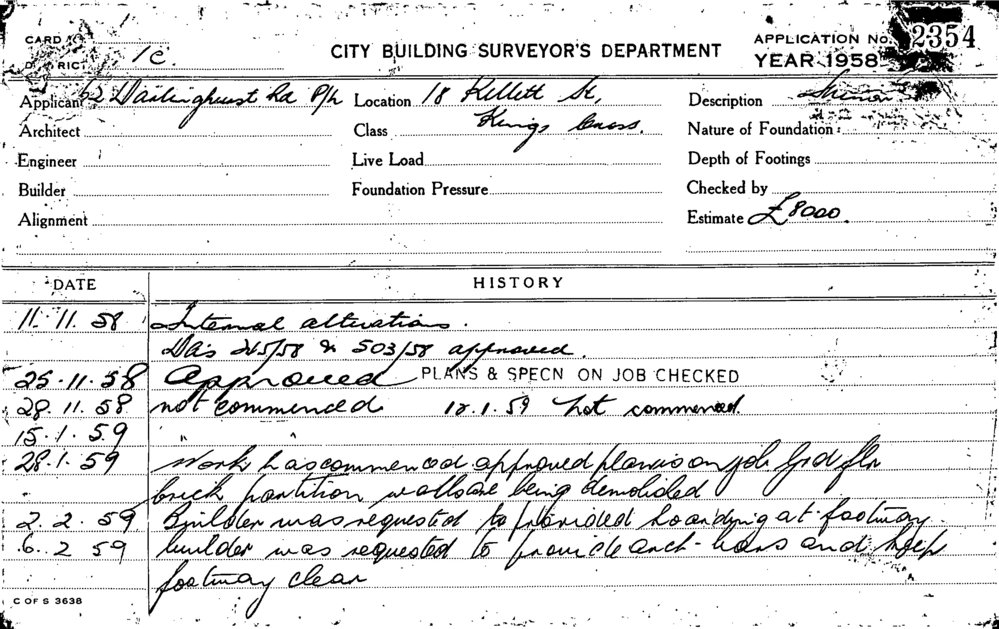 CARD No.
1C.
DISTRICT
CITY BUILDING SURVEYOR'S DEPARTMENT
APPLICATION No. 2354
YEAR 1958
Applicant 52 Darlinghurst Rd P/L
Location 18 Kellett St,
Kings Cross.
Description
Architect
Class
Nature of Foundation
Engineer
Live Load
Depth of Footings
Builder
Foundation Pressure
Checked by
Alignment
Estimate £8000.
DATE
HISTORY
11. 11. 58 Internal alterations.
DA's 245/58 & 503/58 approved.
25. 11. 58 Approved PLANS & SPECN ON JOB CHECKED
28. 11. 58 not commenced 12.1.59 not commenced.
15. 1. 59 " "
28. 1. 59 Work has commenced approved plans on job Grd flr
brick partition walls are being demolished
2. 2. 59 Builder was requested to provided hoarding at footway
6. 2 59 builder was requested to provide and keep
footway clear
C OF S 3638